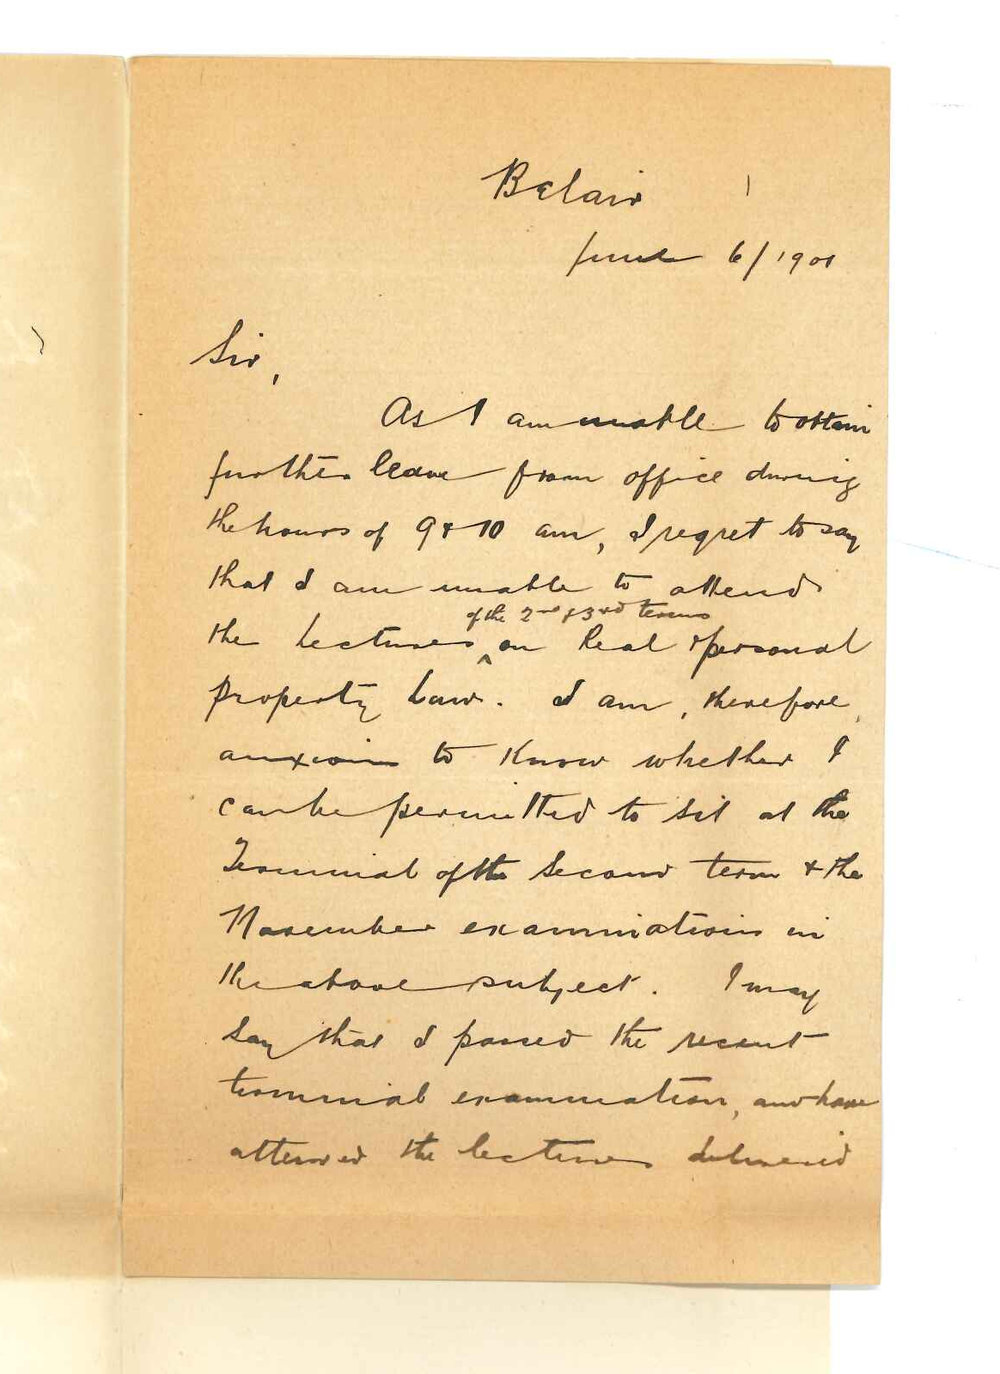 Belair
June 6/1901
Sir,
As I am unable to obtain
further leave from office during
the hours of 9 & 10 am, I regret to say
that I am unable to attend
of the 2nd & 3rd terms
the Lectures ^ on Real & personal
property Law. I am, therefore,
anxious to know whether I
can be permitted to sit at the
Terminal of the Second term & the
November examinations in
the above subject. I may
say that I passed the recent
terminal examination, and have
attended the lectures delivered